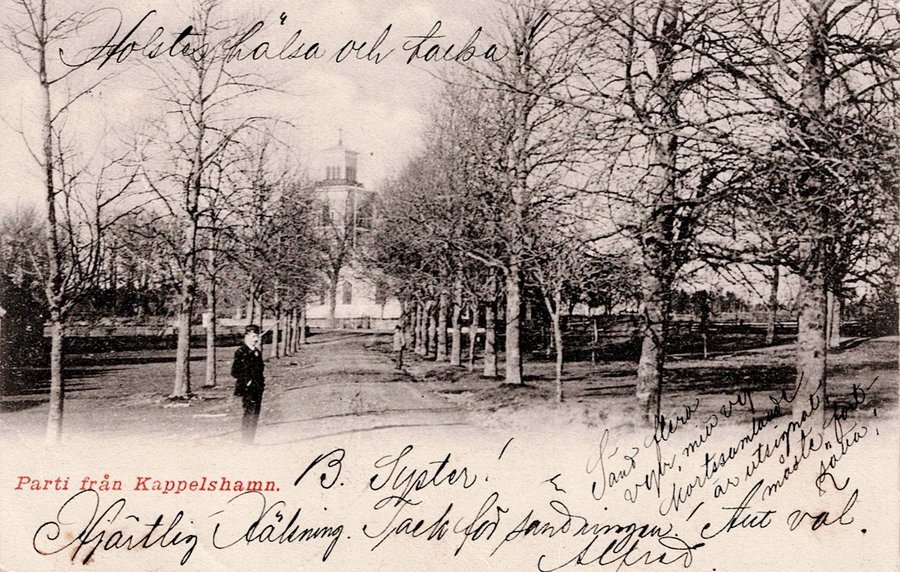 Holsten hälsa och tacka.
Parti från Kappelshamn.
B. Syster!
Hjärtlig Hälsning. Tack för sändningen! Aut väl.
Alfred
Sänd flera
vyer, min vy
kortssamlande
är utsignat
måste fort